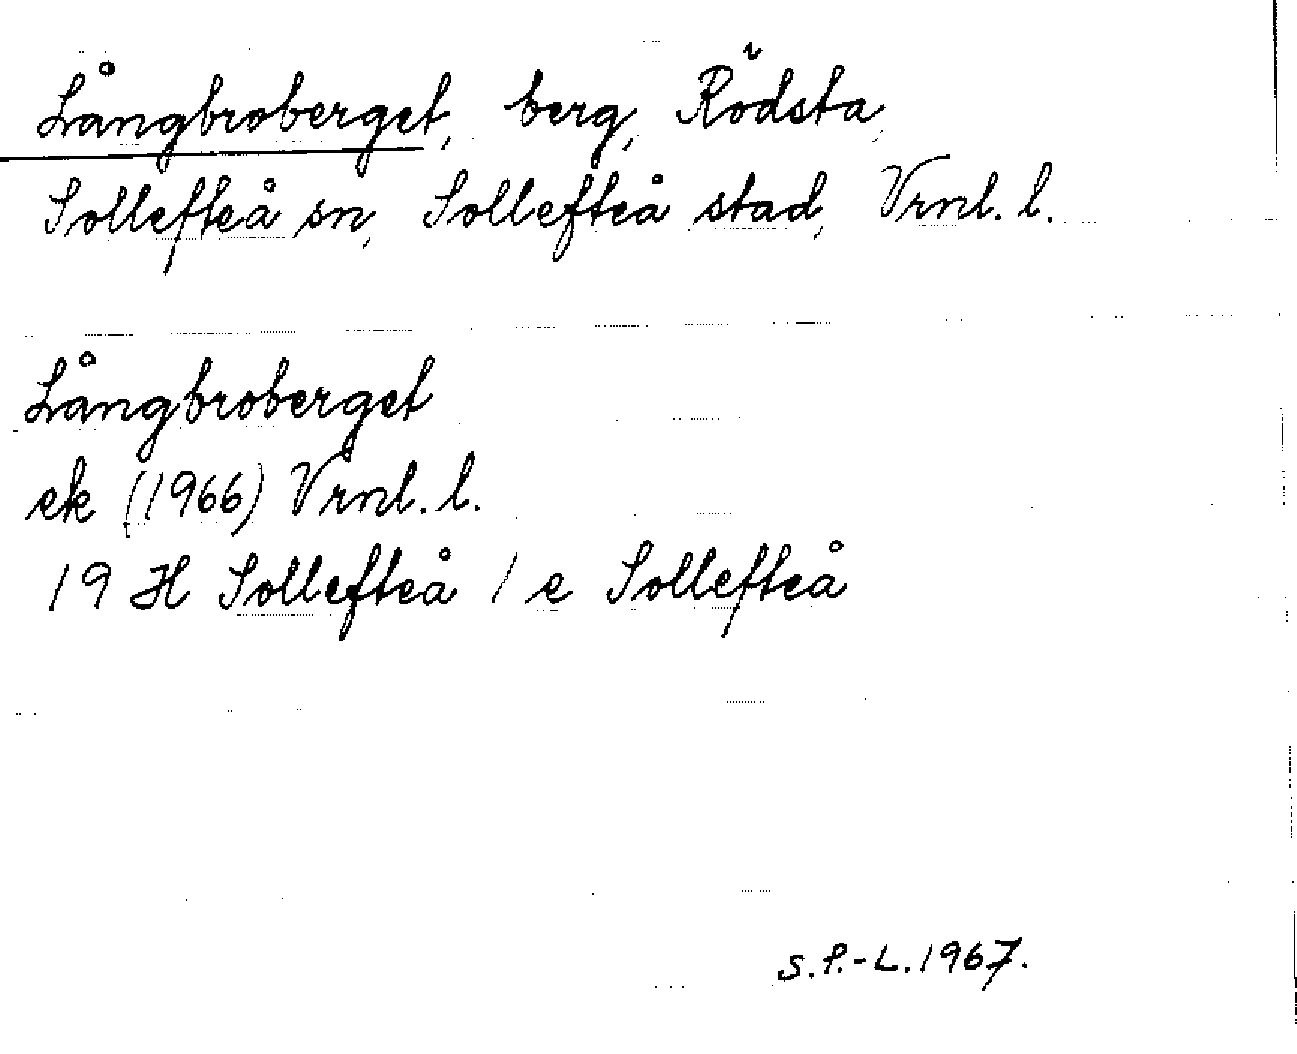 Långbroberget, berg, Rödsta,
Sollefteå sn, Sollefteå stad, Vrnl. l.
Långbroberget
ek (1966) Vrnl. l.
19 H Sollefteå 1 e Sollefteå
S.P.-L. 1967.